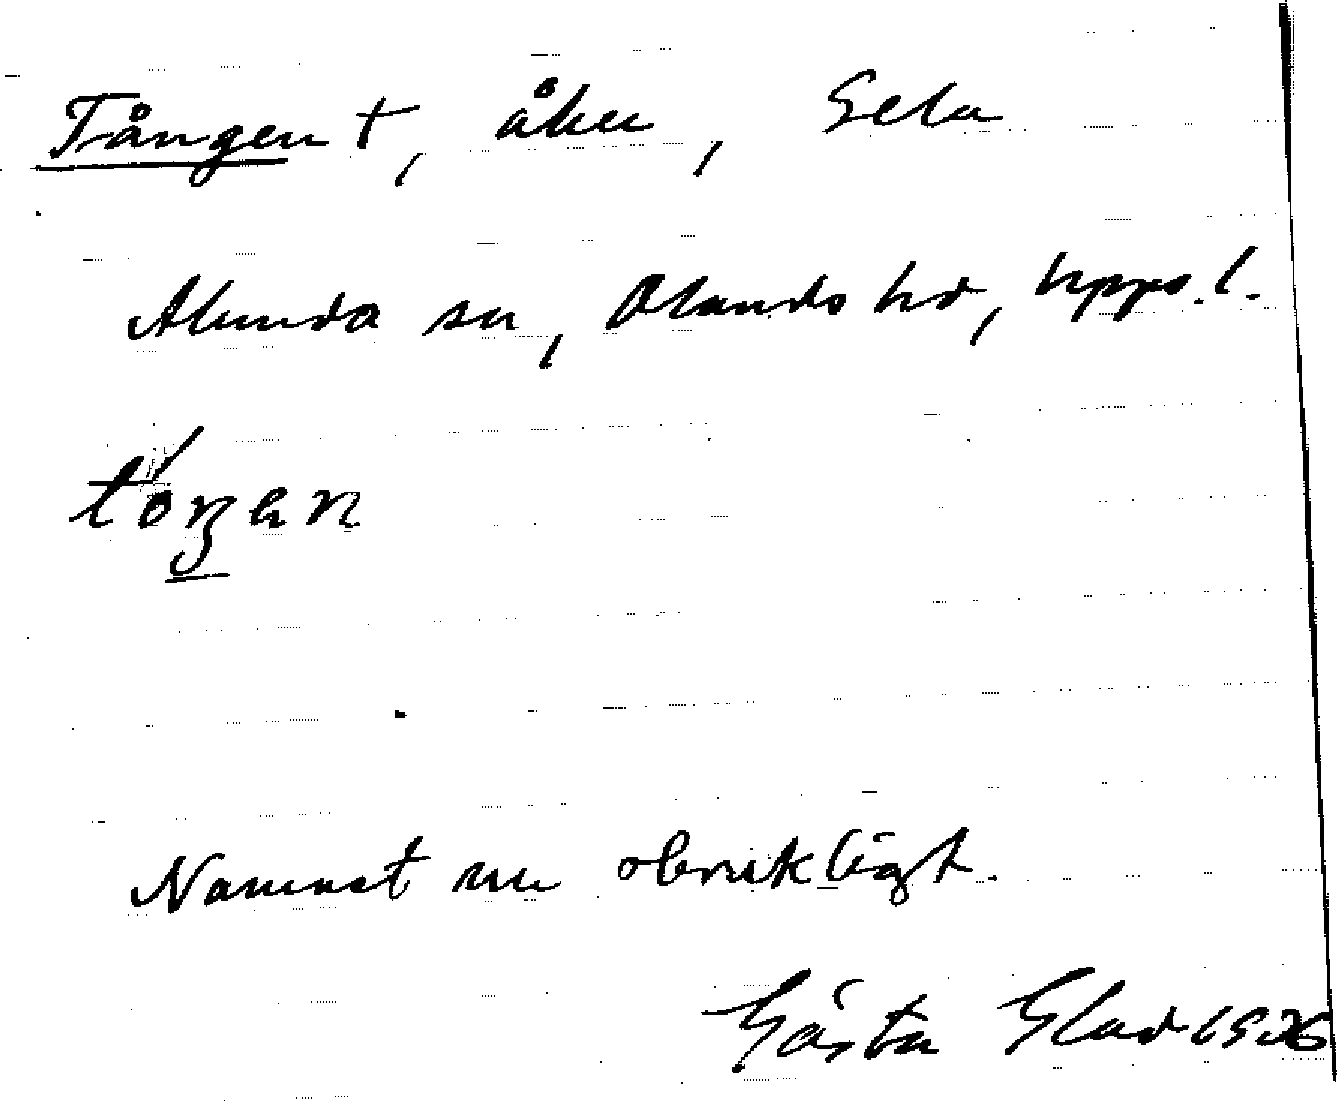 Tången †, åker, Gela
Alunda sn, Olands hd, Upps. l.
tóŋen
Namnet nu obrukligt.
Gösta Glad 1936